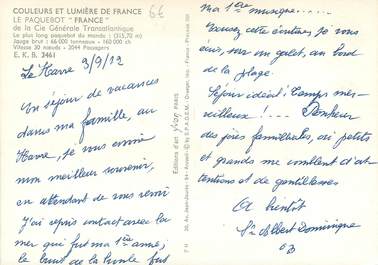 COULEURS ET LUMIÈRE DE FRANCE
LE PAQUEBOT "FRANCE"
de la Cie Générale Transatlantique
Le plus long paquebot du monde : (315,70 m)
Jauge brut : 66 000 tonneaux - 160 000 ch
Vitesse 30 nœuds - 2044 Passagers
E. K. B. 3461
6€
Le Havre 3/9/72
En séjour de vacances
dans ma famille, au
Havre, je vous envoie
mon meilleur souvenir,
en attendant de vous revoir
J'ai repris contact avec la
mer qui fut ma 1ère amie,
le bruit de la houle fut
Editions d'art yvon PARIS
ma 1ère musique....
Excusez cette écriture, je vous
écris sur un galet, au bord
de la plage.
Séjour idéal! temps mer-
veilleux!... Bonheur
des joies familiales, où petits
et grands me comblent d'at-
tentions et de gentillesses
A bientôt
Sr Albert Dominique